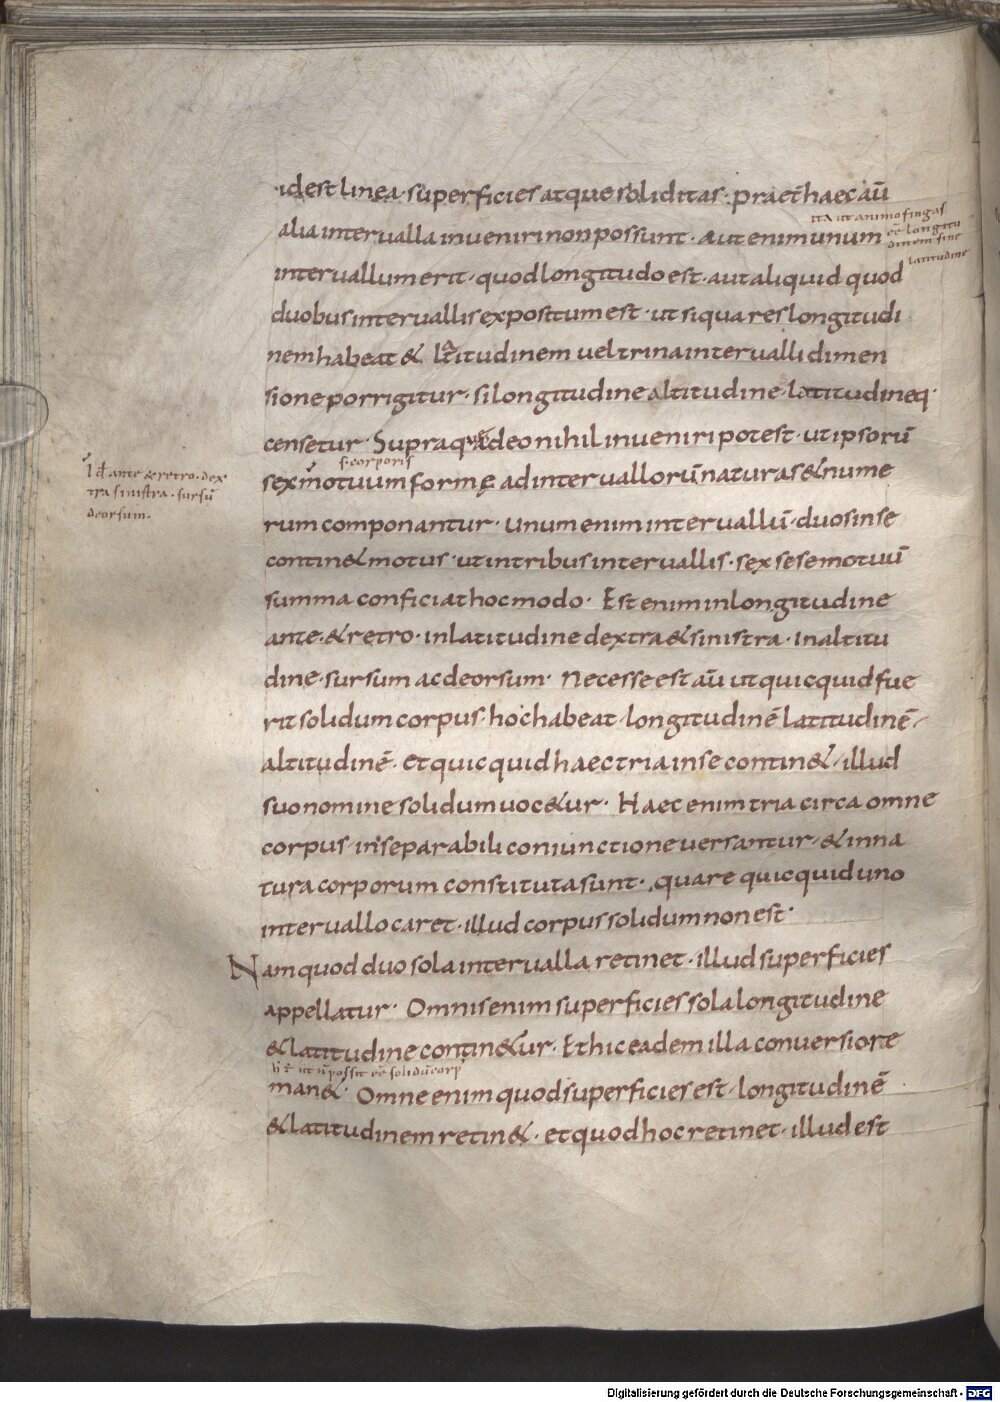 id est linea · superficies atque soliditas · praet̄ haec aū
alia intervalla inveniri non possunt · aut enim unum
ita ut animo fingas
eē longitu
dinem sine
latitudine
intervallum erit · quod longitudo est · aut aliquid quod
duobus intervallis expositum est · ut siqua res longitudi
nem habeat & latitudinem vel trina intervalli dimen
sione porrigitur · si longitudine altitudine · latitudineq·
censetur · Supra quae adeo nihil inveniri potest · ut ipsorū
s· corporis
sex motuum formę ad intervallorū naturas & nume
id ante & retro · dex
tra sinistra · sursū
deorsum ·
rum componantur · Unum enim intervallū · duos in se
contin& motus · ut in tribus intervallis · sex sese motuū
summa conficiat hoc modo · Est enim in longitudine
ante · & retro · in latitudine dextra & sinistra · in altitu
dine · sursum ac deorsum · Necesse est aū ut quicquid fue
rit solidum corpus · hoc habeat · longitudinē latitudinē ·
altitudinē · et quicquid haec tria in se contin& · illud
suo nomine solidum voc&ur · Haec enim tria circa omne
corpus · inseparabili coniunctione versantur · & in na
tura corporum constituta sunt · quare quicquid uno
intervallo caret · illud corpus solidum non est ·
Nam quod duo sola intervalla retinet · illud superficies
appellatur · Omnis enim superficies sola longitudine
& latitudine contin&ur · Et hic eadem illa conversio re
ut n̄ possit eē solidū corp
man& · Omne enim quod superficies est · longitudinē
& latitudinem retin& · et quod hoc retinet · illud est
Digitalisierung gefördert durch die Deutsche Forschungsgemeinschaft - DFG